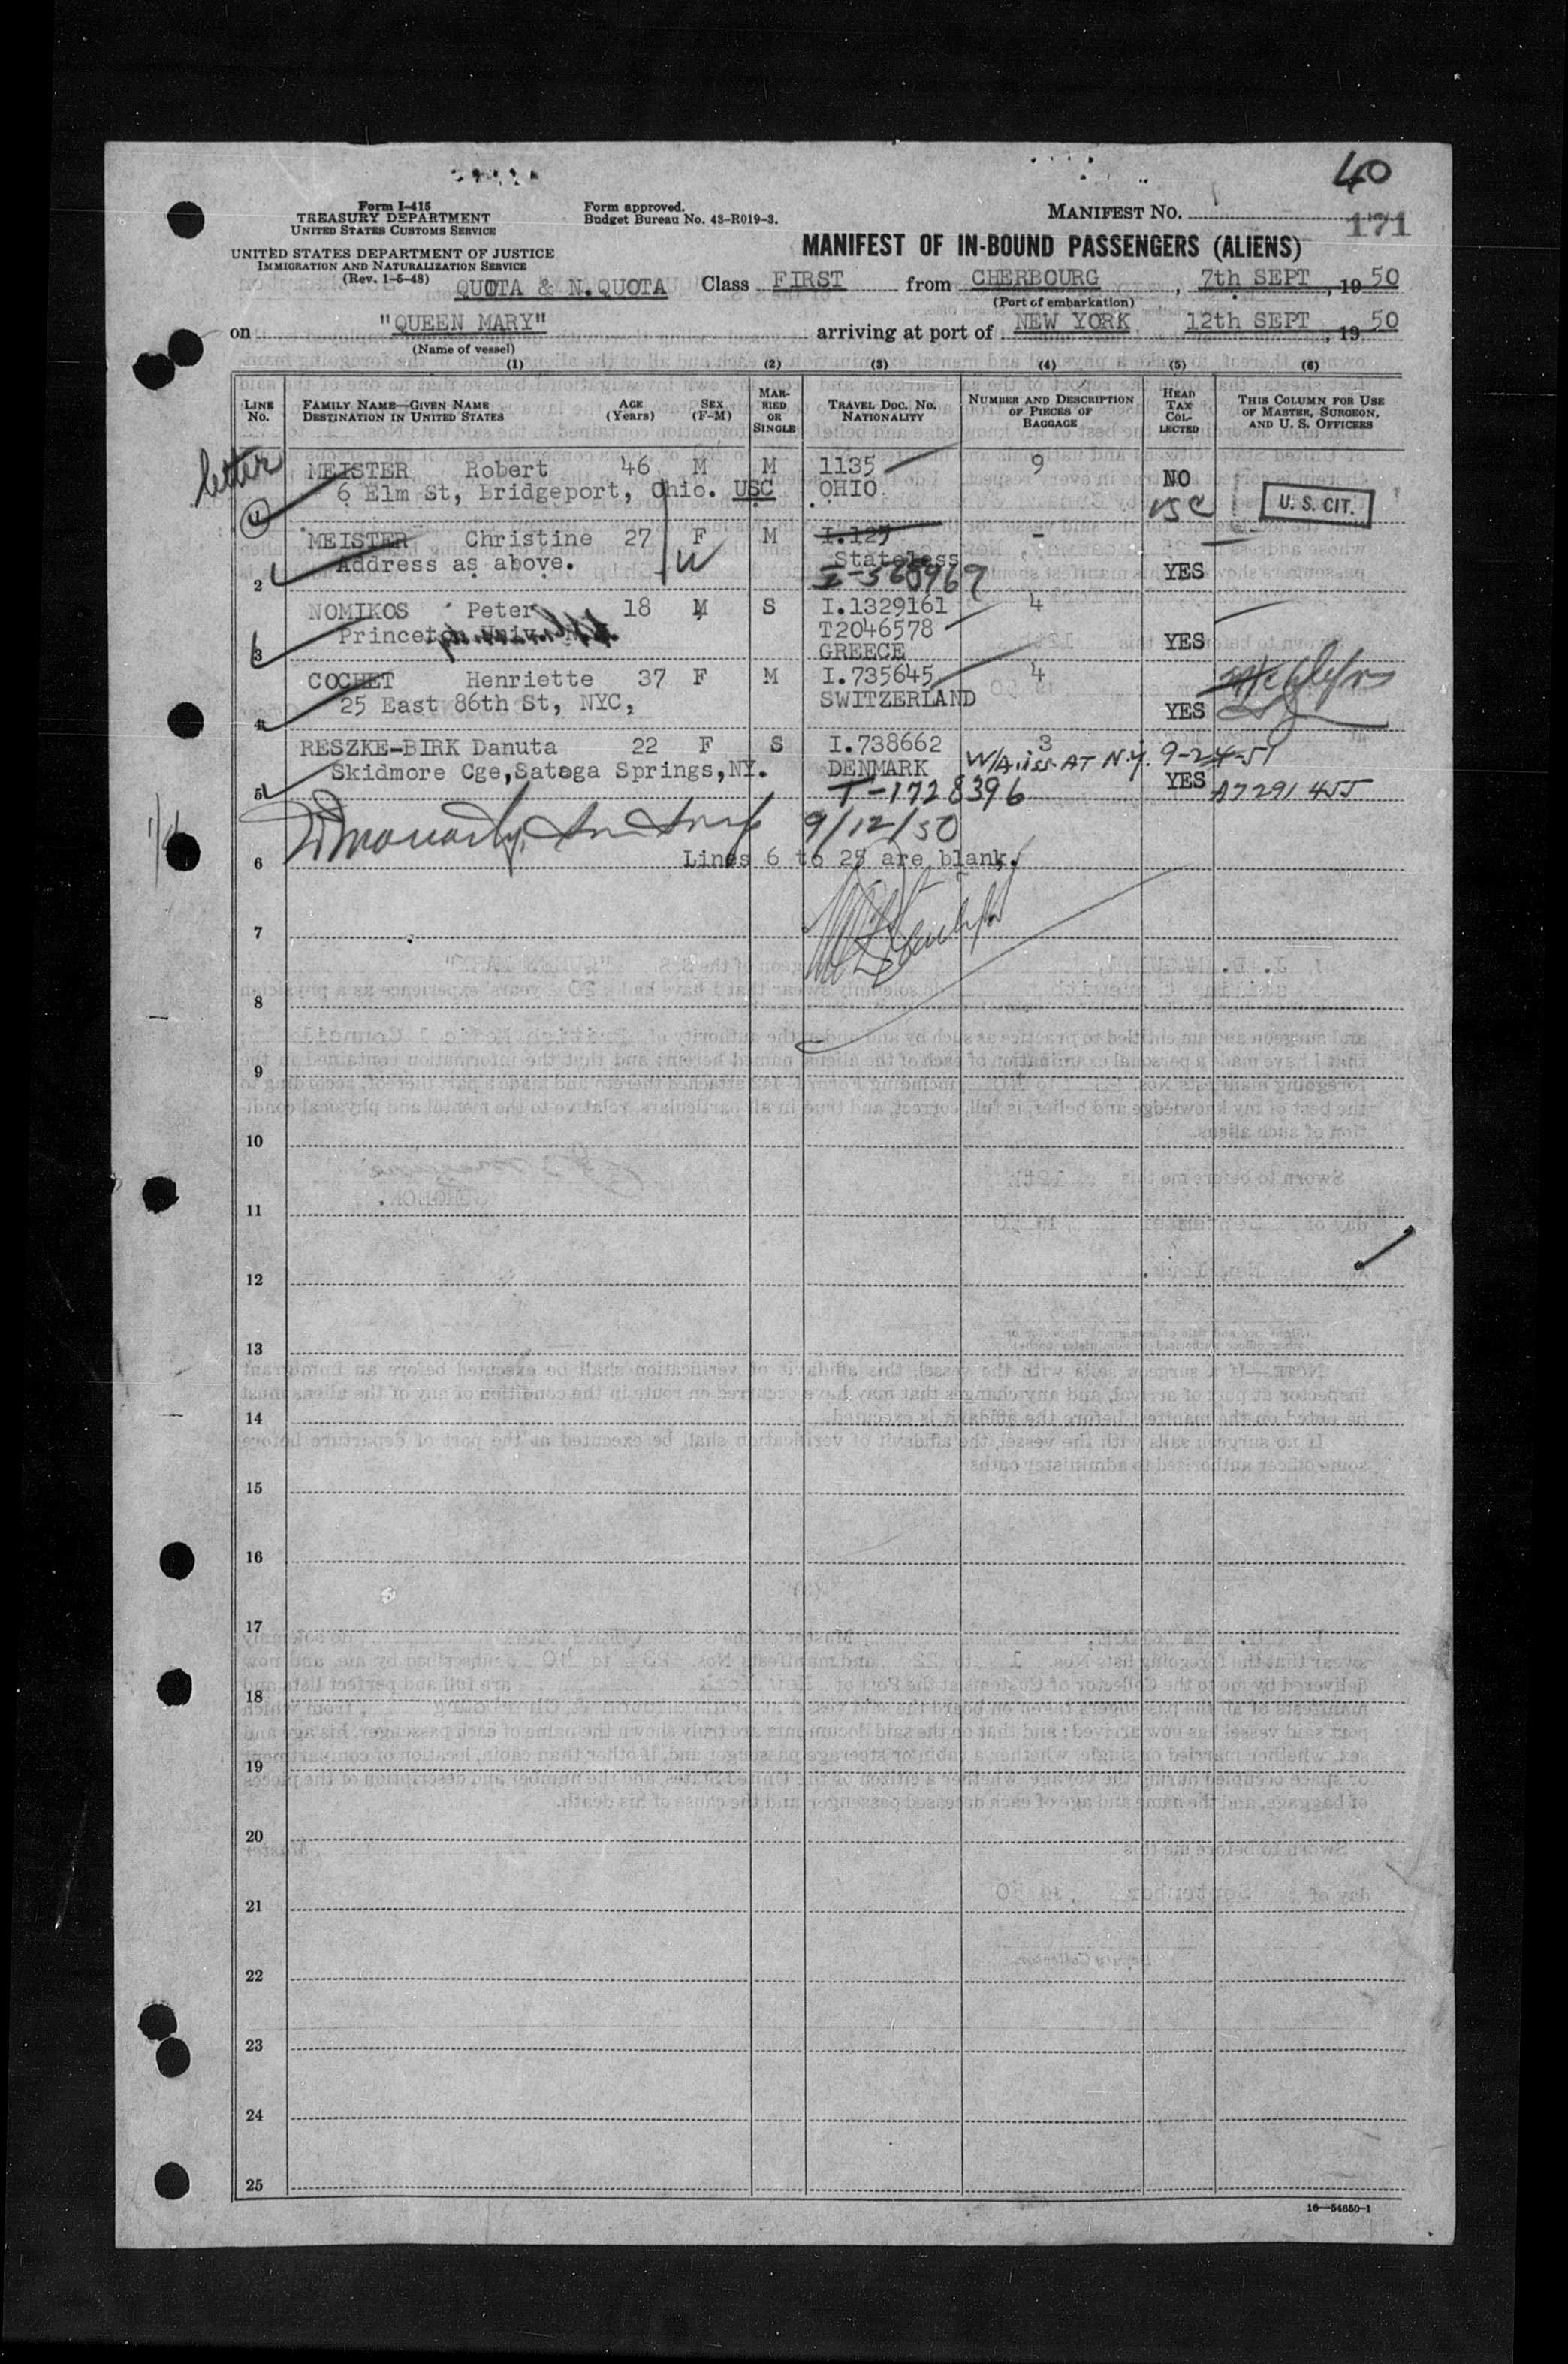 40
Form I-415
TREASURY DEPARTMENT
UNITED STATES CUSTOMS SERVICE
Form approved.
Budget Bureau No. 43-R019-3.
MANIFEST NO.
171
UNITED STATES DEPARTMENT OF JUSTICE
IMMIGRATION AND NATURALIZATION SERVICE
(Rev. 1-5-48)
MANIFEST OF IN-BOUND PASSENGERS (ALIENS)
QUOTA & N.QUOTA Class FIRST from CHERBOURG, 7th SEPT, 19 50
(Port of embarkation)
on "QUEEN MARY" arriving at port of NEW YORK 12th SEPT, 19 50
(Name of vessel)
(1) (2) (3) (4) (5) (6)
LINE No. FAMILY NAME—GIVEN NAME DESTINATION IN UNITED STATES AGE (Years) SEX (F-M) MARRIED OR SINGLE TRAVEL DOC. NO. NATIONALITY NUMBER AND DESCRIPTION OF PIECES OF BAGGAGE HEAD TAX COLLECTED THIS COLUMN FOR USE OF MASTER, SURGEON, AND U. S. OFFICERS
letter
MEISTER Robert 46 M M 1135 9 NO
1 6 Elm St, Bridgeport, Ohio. USC OHIO USC U. S. CIT.
MEISTER Christine 27 F M I.125 -
Address as above. W Stateless YES
2 I-568967
NOMIKOS Peter 18 M S I.1329161 4
Princeton Univ. T2046578 YES
3 GREECE
COCHET Henriette 37 F M I.735645 4
4 25 East 86th St, NYC, SWITZERLAND YES
RESZKE-BIRK Danuta 22 F S I.738662 3
Skidmore Cge,Satoga Springs,NY. DENMARK W/A iss AT N.Y. 9-24-51
5 T-1728396 YES A7291455
9/12/50
6 Lines 6 to 25 are blank.
7
8
9
10
11
12
13
14
15
16
17
18
19
20
21
22
23
24
25
16—54650-1